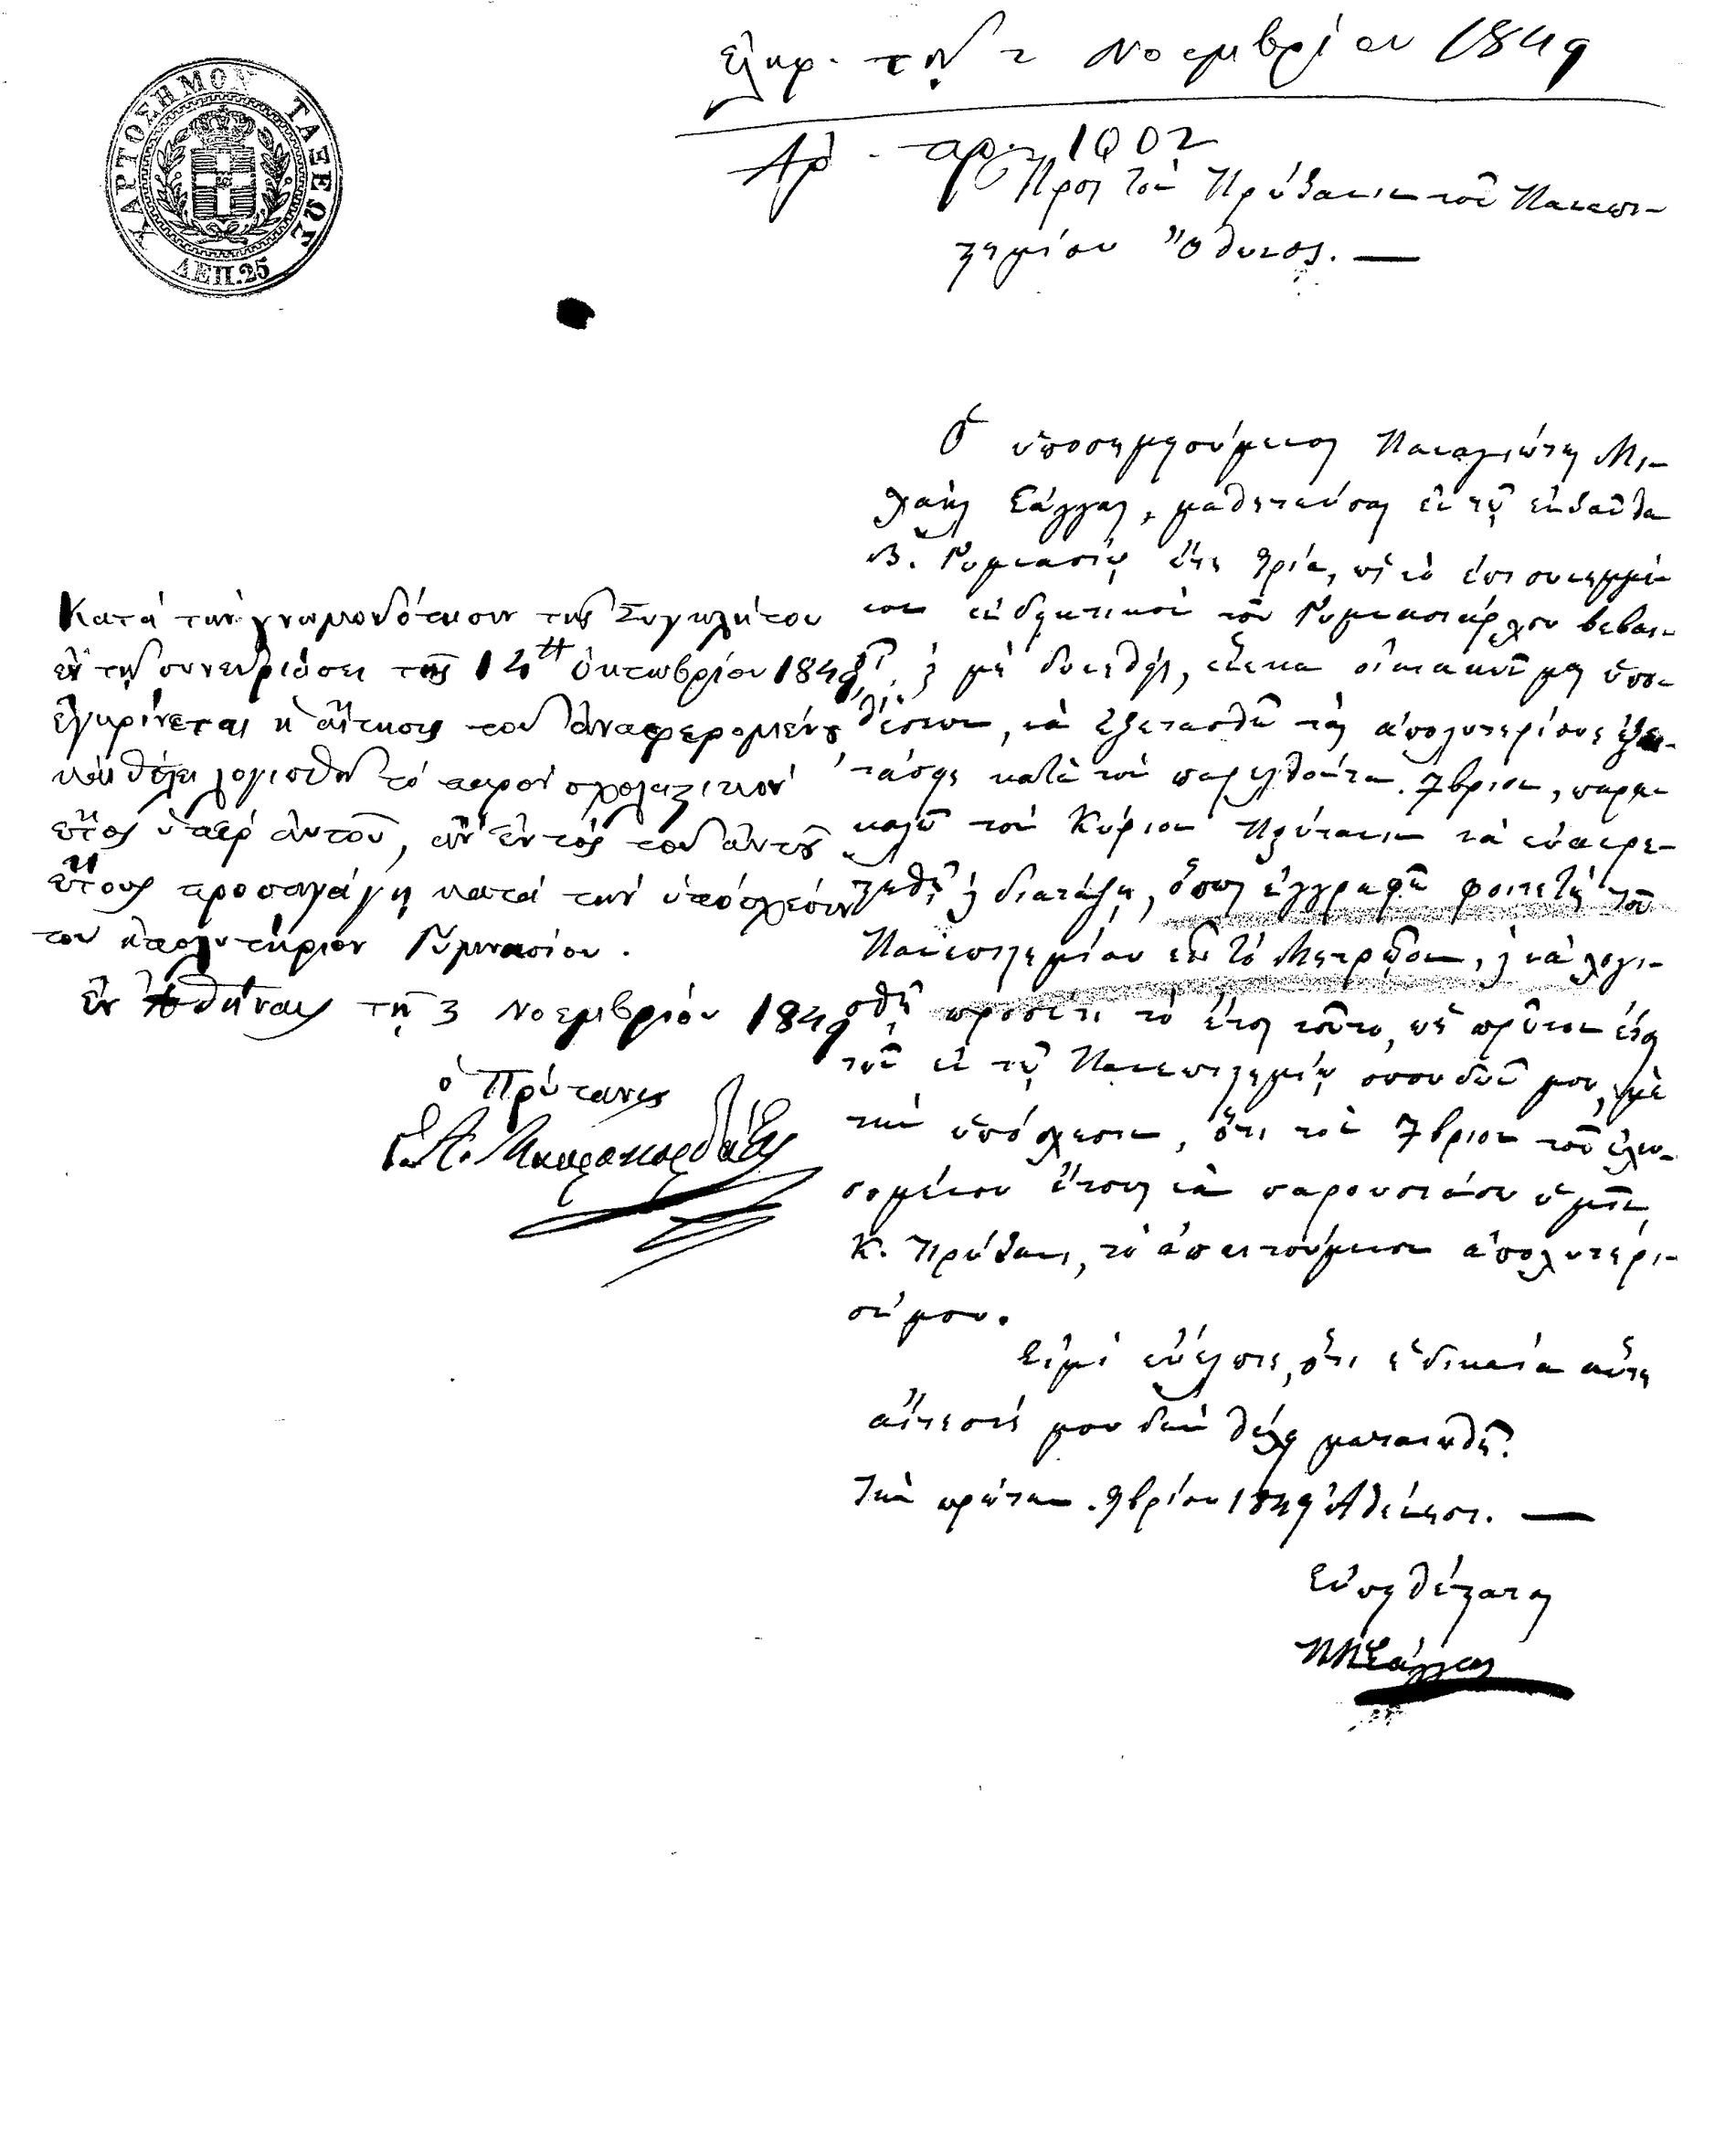 ΧΑΡΤΟΣΗΜΟΝ ΤΑΞΕΩΣ
ΛΕΠ. 25
ἐλήφ. τῇ 2 Νοεμβρίου 1849
Ἀρ. πρ. 1002
Πρὸς τὸν Πρύτανιν τοῦ Πανεπι-
στημίου Ὄθωνος. —
Ὁ ὑποσημειούμενος Παναγιώτης Μι-
χαὴλ Σάγγας, μαθητεύσας ἐν τῷ ἐνταῦθα
Β. Γυμνασίῳ ἔτη τρία, ὡς τὸ ἐπισυνημμέ-
νον ἐνδεικτικὸν τοῦ Γυμνασιάρχου βεβαι-
οῖ, καὶ μὴ δυνηθεὶς, ἕνεκα οἰκιακῶν μου ὑπο-
θέσεων, νὰ ἐξετασθῶ τὰς ἀπολυτηρίους ἐξε-
τάσεις κατὰ τὸν παρελθόντα 7βριον, παρα-
καλῶ τὸν Κύριον Πρύτανιν νὰ εὐαρε-
στηθῇ νὰ διατάξῃ, ὅπως ἐγγραφῶ φοιτητὴς τοῦ
Πανεπιστημίου εἰς τὸ Μητρῷον, καὶ νὰ λογι-
σθῇ προσέτι τὸ ἔτος τοῦτο, ὡς πρῶτον ἔτος
τῶν ἐν τῷ Πανεπιστημίῳ σπουδῶν μου, μὲ
τὴν ὑπόσχεσιν, ὅτι τὸν 7βριον τοῦ ἐλευ-
σομένου ἔτους νὰ παρουσιάσω ὑμῖν,
Κ. Πρύτανι, τὸ ἀπαιτούμενον ἀπολυτήρι-
όν μου.
Εἰμὶ εὔελπις, ὅτι ἡ δικαία αὕτη
αἴτησίς μου δὲν θέλει ματαιωθῆ.
Τὴν πρώτην 9βρίου 1849 Ἀθήνησι. —
Εὐπειθέστατος
Π Μ Σάγγας
Κατὰ τὴν γνωμοδότησιν τῆς Συγκλήτου
ἐν τῇ συνεδριάσει τῆς 14 Ὀκτωβρίου 1849
ἐγκρίνεται ἡ αἴτησις τοῦ ἀναφερομένου
καὶ θέλει λογισθῆ τὸ παρὸν σχολαστικὸν
ἔτος ὑπὲρ αὐτοῦ, ἂν ἐντὸς τοῦ αὐτοῦ
ἔτους προσαγάγῃ κατὰ τὴν ὑπόσχεσίν
του ἀπολυτήριον Γυμνασίου.
Ἐν Ἀθήναις τῇ 3 Νοεμβρίου 1849
ὁ Πρύτανις
Μαυροκορδάτος